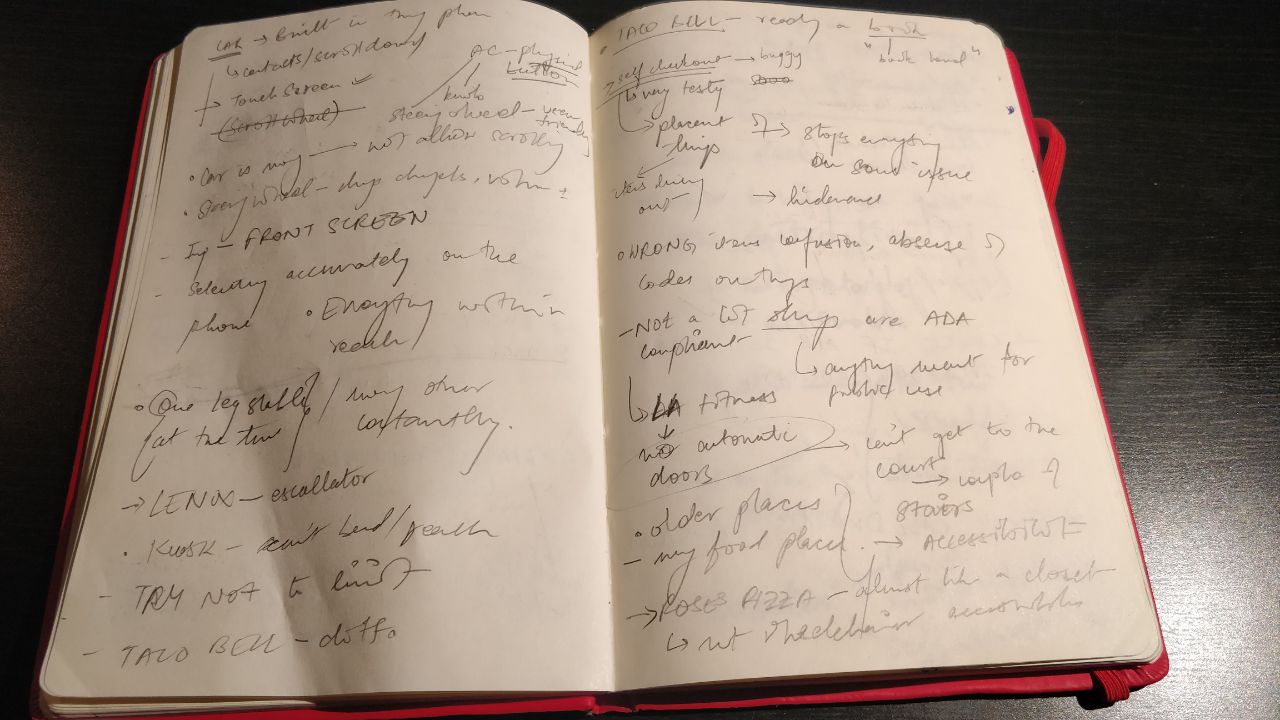 CAR → Built in my phone
↳ contacts/scroll down
→ Touch Screen ✓
(Scroll Wheel)
AC - physical
button
knobs
steering wheel - very
friendly
• Car is moving → not allow scrolling
• Steering wheel - volume ±
- FRONT SCREEN
- Selecting accurately on the
phone
• Everything within
reach
• One leg stable / other
at the time constantly.
→ LENOX - escallator
• Kiosk - can't bend/reach
- TRY NOT to limit
- TACO BELL - diff.
• TACO BELL - ready a book
"book level"
→ self checkout → buggy
↳ very testy
↳ placement of → stops everything
things on some issue
out → hinderance
• WRONG items confusion, absense of
codes on things
- NOT a lot shops are ADA
compliant
↳ anything meant for
public use
↳ LA fitness
↓
no automatic
doors
→ can't get to the
court
→ couple of
stairs
• older places
- many food places. → ACCESSIBILITY
→ ROSE'S PIZZA - almost like a closet
↳ not wheelchair accessible